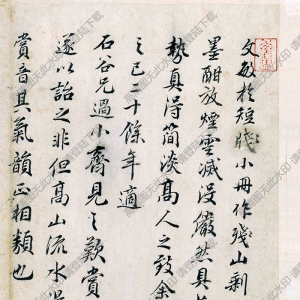 文敏於短牋小冊作殘山剩
墨酣放煙雲滅沒儼然具
勢真得簡淡高人之致余
之已二十餘年適
石谷兄過小齋見之歎賞
遂以詒之非但高山流水
賞音其氣韻正相類也